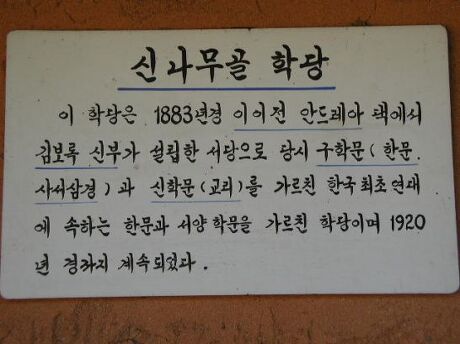 신나무골 학당
이 학당은 1883년경 이이전 안드레아 댁에서
김보록 신부가 설립한 서당으로 당시 구학문(한문
사서삼경)과 신학문(교리)를 가르친 한국 최초 연대
에 속하는 한문과 서양 학문을 가르친 학당이며 1920
년 경까지 계속되었다.